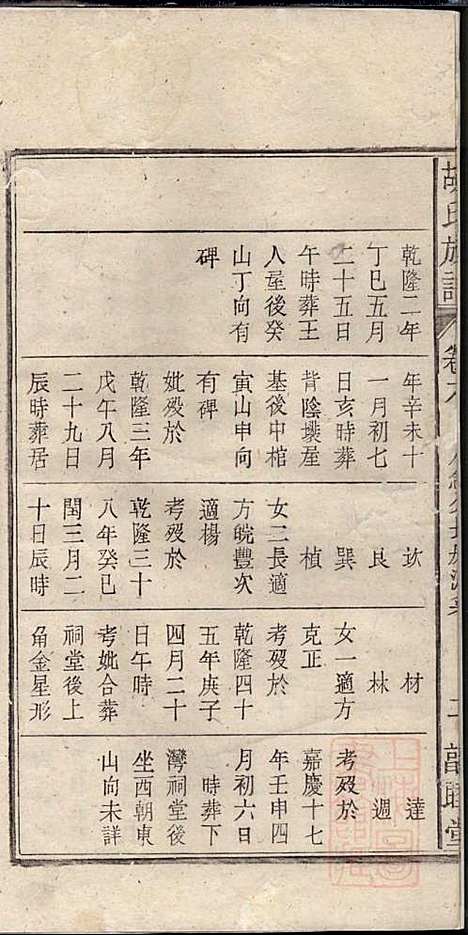 胡氏族譜
卷六
乾隆二年
丁巳五月
二十五日
午時葬王
人屋後癸
山丁向有
碑
年辛未十
一月初七
日亥時葬
背陰壪屋
基後中棺
寅山申向
有碑
妣歿於
乾隆三年
戊午八月
二十九日
辰時葬居
㰡
良
巽
楨
女二長適
方皖豐次
適楊
考歿於
乾隆三十
八年癸巳
閏三月二
十日辰時
材
林
女一適方
克正
考歿於
乾隆四十
五年庚子
四月二十
日午時
考妣合葬
祠堂後上
角金星形
達
週
考歿於
嘉慶十七
年壬申四
月初六日
時葬下
灣祠堂後
坐西朝東
山向未詳